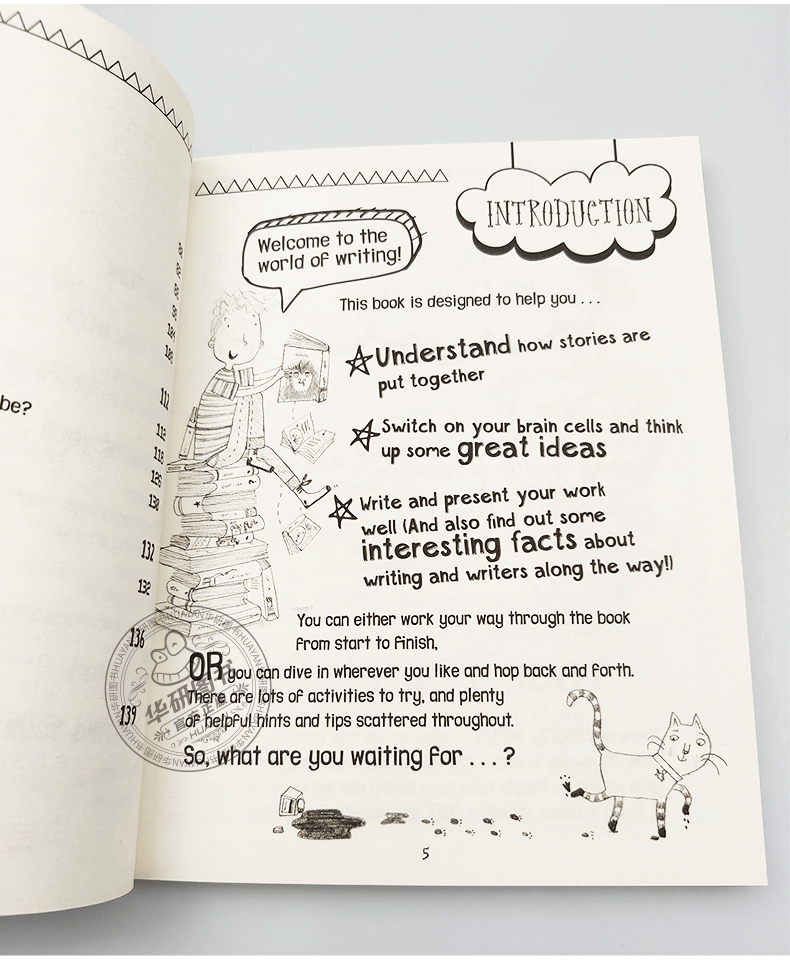 be?
112
112
118
126
130
132
132
136
139
INTRODUCTION
Welcome to the
world of writing!
This book is designed to help you . . .
Understand how stories are
put together
Switch on your brain cells and think
up some great ideas
Write and present your work
well (And also find out some
interesting facts about
writing and writers along the way!)
You can either work your way through the book
from start to finish,
OR you can dive in wherever you like and hop back and forth.
There are lots of activities to try, and plenty
of helpful hints and tips scattered throughout.
So, what are you waiting for . . . ?
5
华研图书
HUAYAN